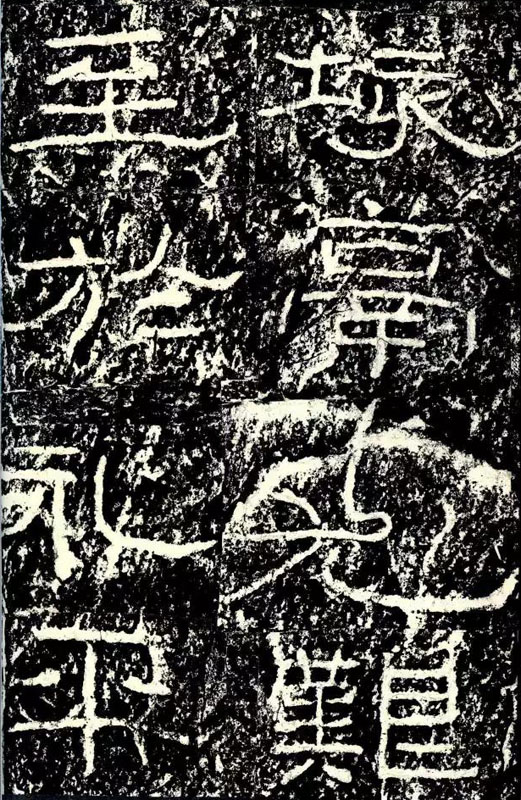 垓鬲尤艱
至於永平